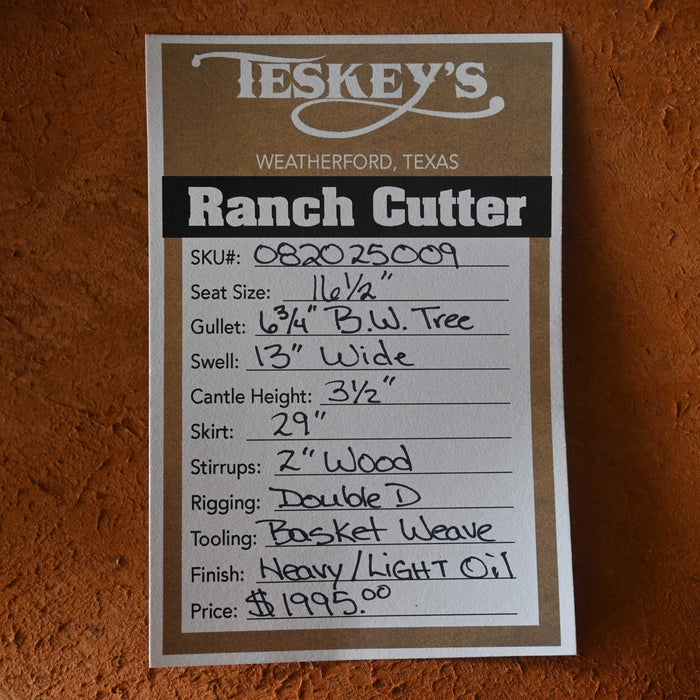 TESKEY'S
WEATHERFORD, TEXAS
Ranch Cutter
SKU#: 082025009
Seat Size: 16 1/2"
Gullet: 6 3/4" B.W. Tree
Swell: 13" Wide
Cantle Height: 3 1/2"
Skirt: 29"
Stirrups: 2" Wood
Rigging: Double D
Tooling: Basket Weave
Finish: Heavy/LIGHT Oil
Price: $1995.00